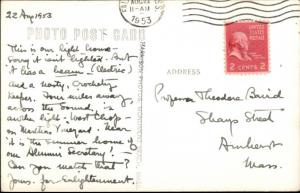 22 Aug 1953
AUG 22
11-AM
1953
PHOTO POST CARD
This is our light house -
Sorry it isn't lighted. But
it has a beam - (electric)
and a trusty, crochety
keeper. Four miles away,
across the Sound, is
another light - West Chop -
on Martha's Vineyard. Near
it is the summer home of
our Alumni Secretary.
Can you match that?
Yours, for Enlightenment,
ADDRESS
2 CENTS 2
Professor Theodore Baird
Shays Street
Amherst
Mass.